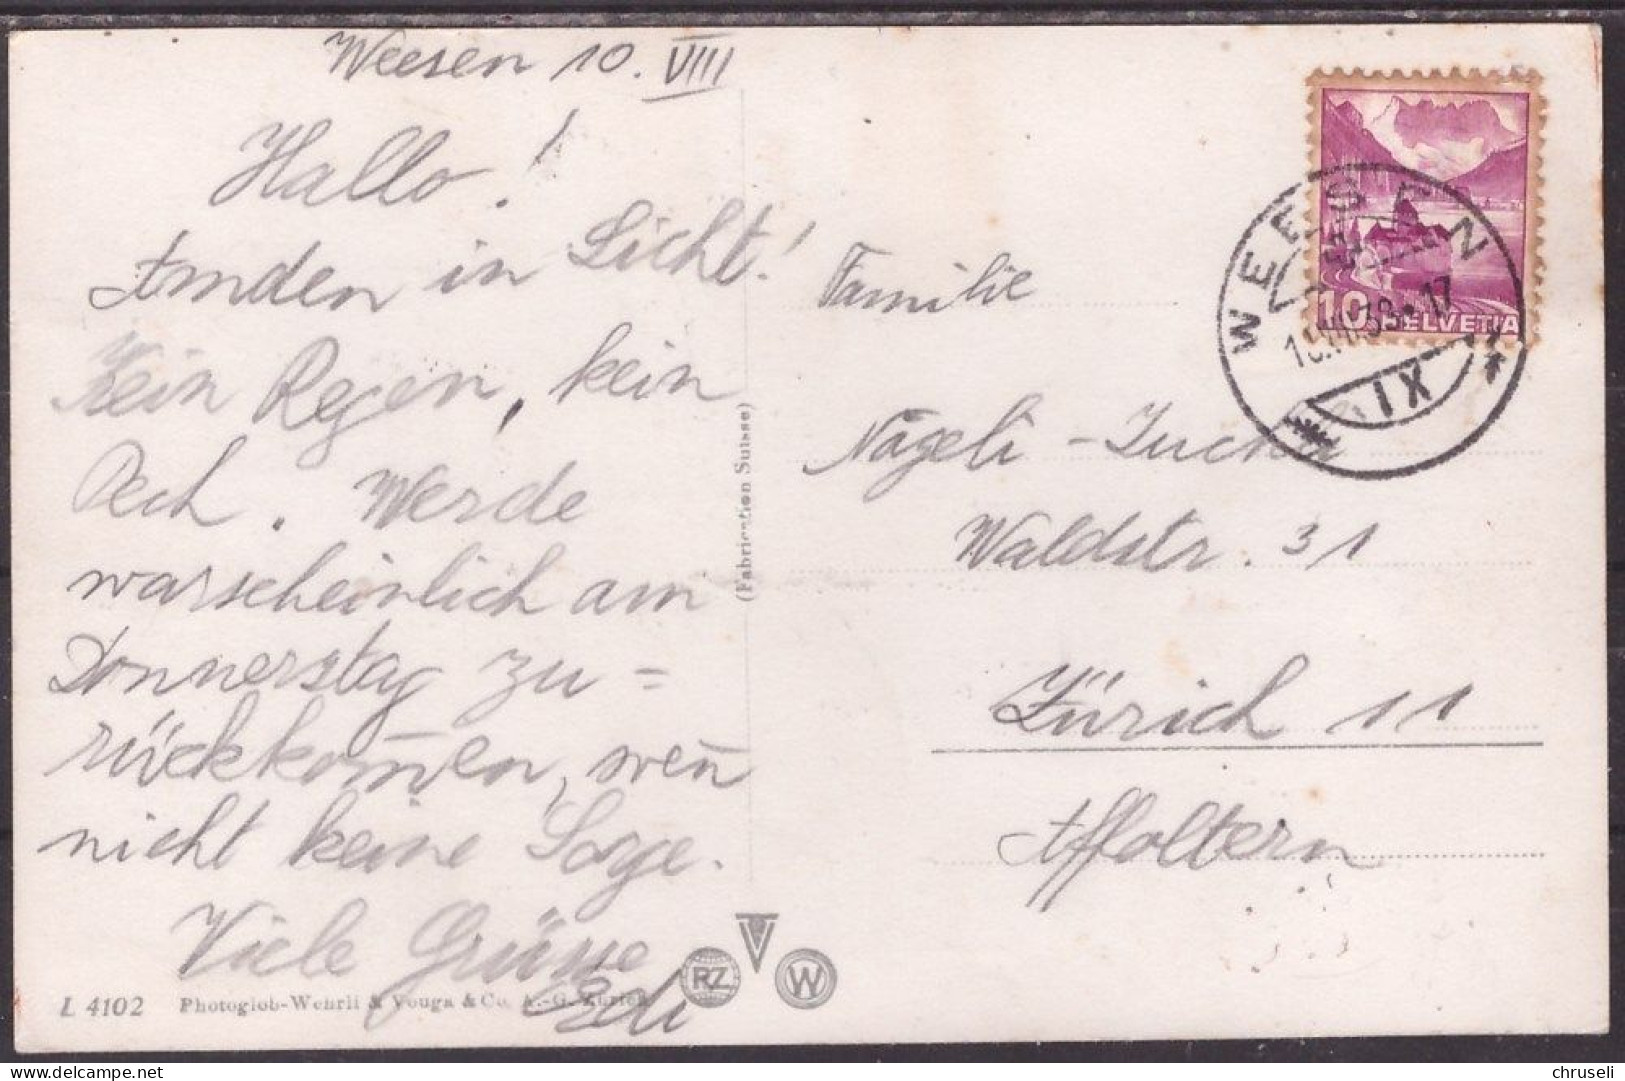 Weesen 10. VIII
Hallo!
Amden in Sicht!
Kein Regen, kein
Pech. Werde
warscheinlich am
Donnerstag zu=
rückkom̄en, wen̄
nicht keine Sorge.
Viele Grüsse
Edi
L 4102 Photoglob-Wehrli & Vouga & Co. A.-G. Zürich
(Fabrication Suisse)
RZ
V
W
Familie
Nägeli - Zucker
Waldstr. 31
Zürich 11
Affoltern
10 HELVETIA
WEESEN
10.VIII.39 • 17
IX
chruseli